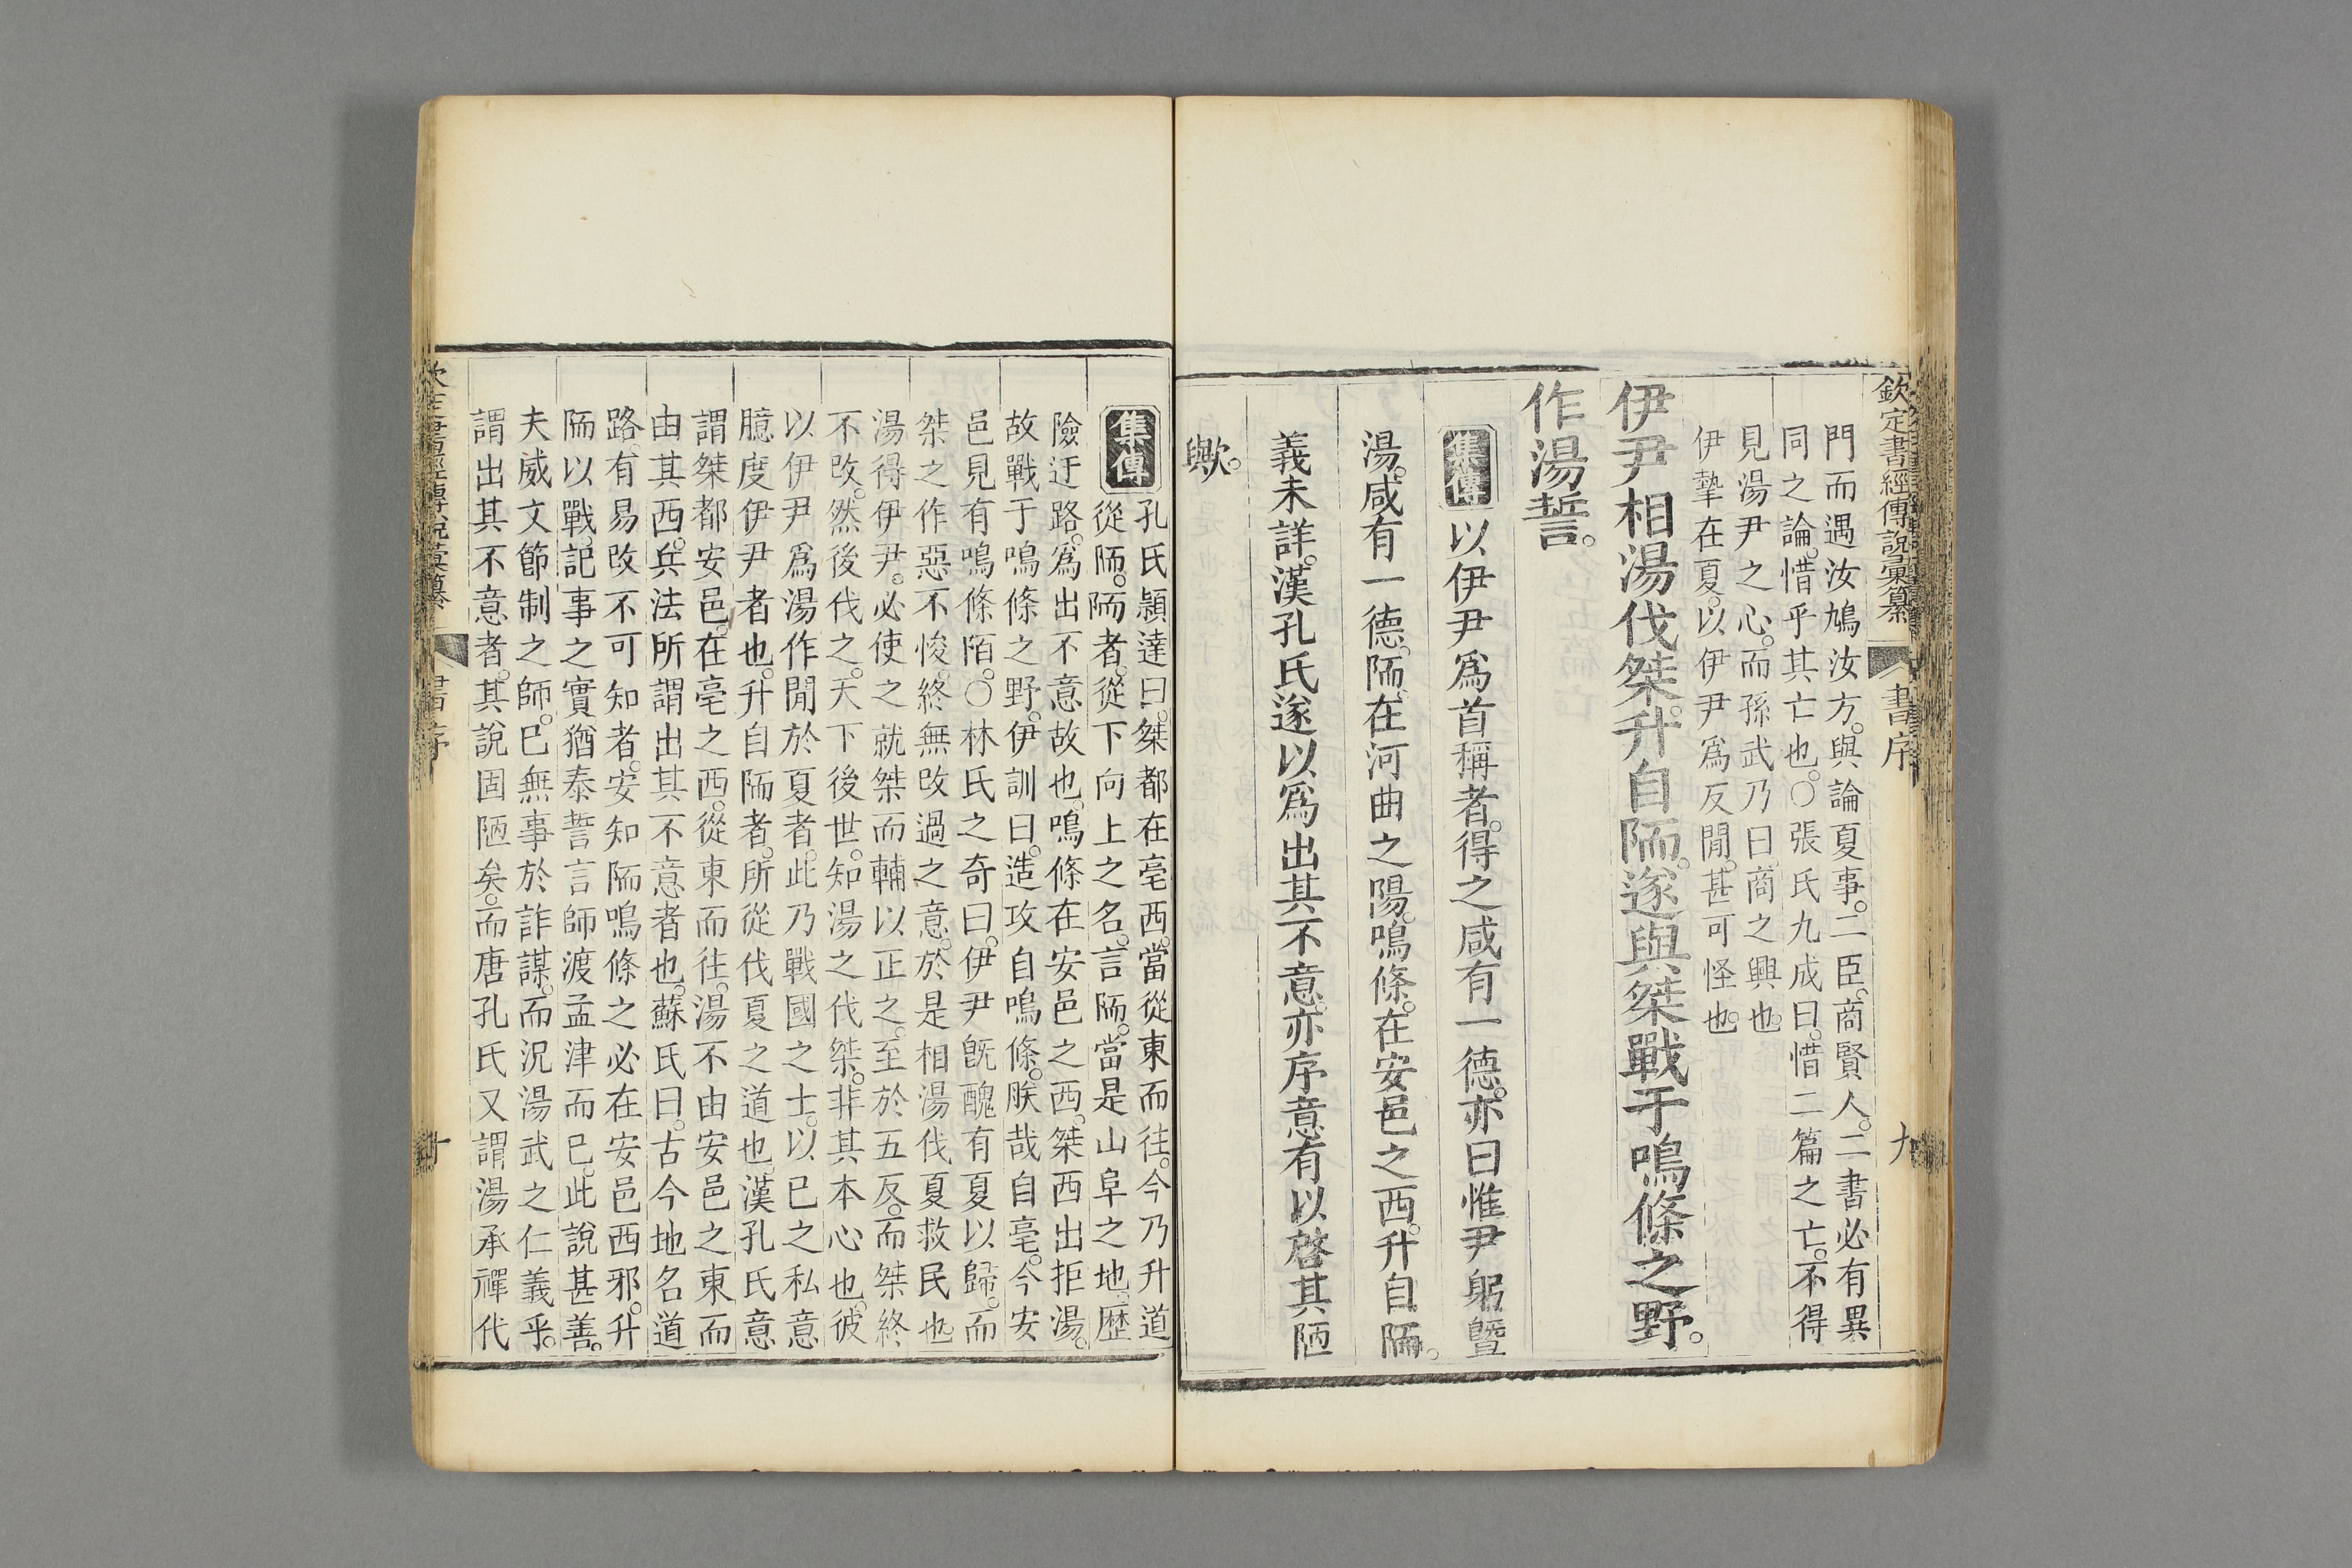 欽定書經傳說彙纂　書序　九
門而遇汝鳩汝方。與論夏事。二臣。商賢人。二書必有異
同之論。惜乎其亡也。○張氏九成曰。惜二篇之亡。不得
見湯尹之心。而孫武乃曰。商之興也。
伊摯在夏。以伊尹爲反閒。甚可怪也。
伊尹相湯伐桀。升自陑。遂與桀戰于鳴條之野。
作湯誓。
集傳 以伊尹爲首稱者。得之咸有一德。亦曰惟尹躬曁
湯。咸有一德。陑。在河曲之陽。鳴條。在安邑之西。升自陑。
義未詳。漢孔氏遂以爲出其不意。亦序意有以啓其陋
歟。
集傳
孔氏穎達曰。桀都在亳西。當從東而往。今乃升道
從陑。陑者。從下向上之名。言陑。當是山阜之地。歷
險迂路。爲出不意故也。鳴條在安邑之西。桀西出拒湯。
故戰于鳴條之野。伊訓曰。造攻自鳴條。朕哉自亳。今安
邑見有鳴條陌。○林氏之奇曰。伊尹旣醜有夏以歸。而
桀之作惡不悛。終無改過之意。於是相湯伐夏救民也。
湯得伊尹。必使之就桀而輔以正之。至於五反。而桀終
不改。然後伐之。天下後世。知湯之伐桀。非其本心也。彼
以伊尹爲湯作閒於夏者。此乃戰國之士。以已之私意
臆度伊尹者也。升自陑者。所從伐夏之道也。漢孔氏意
謂桀都安邑。在亳之西。從東而往。湯不由安邑之東而
由其西。兵法所謂出其不意者也。蘇氏曰。古今地名道
路。有易改不可知者。安知陑鳴條之必在安邑西邪。升
陑以戰。記事之實猶泰誓言師渡孟津而已。此說甚善。
夫威文節制之師。已無事於詐謀。而況湯武之仁義乎。
謂出其不意者。其說固陋矣。而唐孔氏又謂湯承禪代
欽定書經傳說彙纂　書序　十